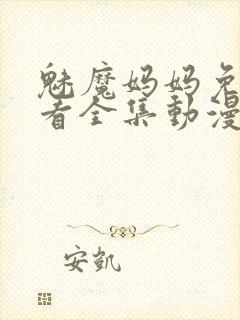 魅魔妈妈免
看全集動漫
安凯